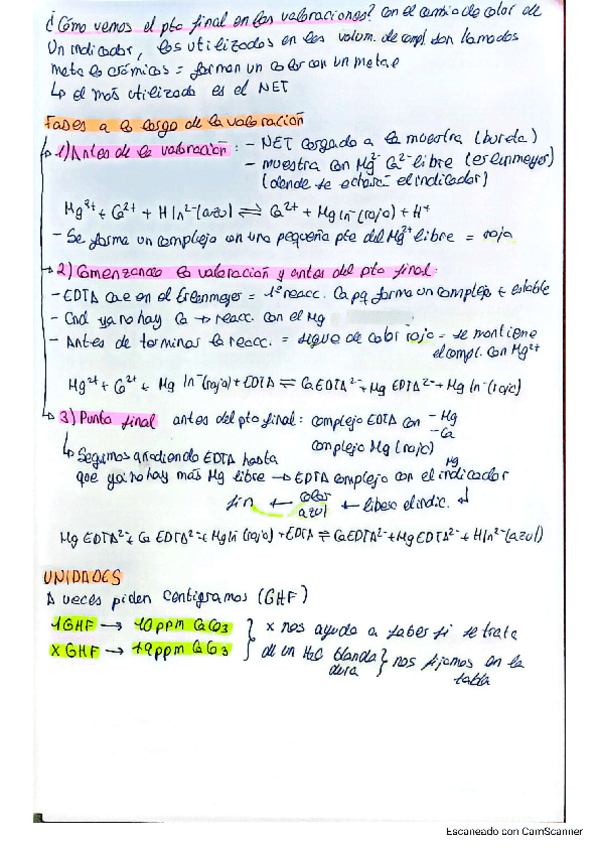 ¿Cómo vemos el pto final en las valoraciones? con el cambio de color de
Un indicador, los utilizados en las volum. de compl. son llamados
metalocrómicos = forman un color con un metal
↳ el más utilizado es el NET
Fases a lo largo de la valoración
1) Antes de la valoración: - NET cargado a la muestra (bureta)
- muestra con Mg²⁻ Ca²⁻ libre (erlenmeyer)
(donde se echará el indicador)
Mg²⁺ + Ca²⁺ + HIn²⁻(azul) ⇌ Ca²⁺ + MgIn⁻(rojo) + H⁺
- Se forma un complejo con una pequeña pte del Mg²⁺ libre = roja
2) Comenzando la valoración y antes del pto final:
- EDTA cae en el Erlenmeyer = 1º reacc. Ca pq forma un complejo + estable
- Cnd ya no hay Ca → reacc. con el Mg
- Antes de terminar la reacc. = sigue de color rojo = se mantiene
el compl. con Mg²⁺
Mg²⁺ + Ca²⁺ + Mg In⁻(rojo) + EDTA ⇌ CaEDTA²⁻ + Mg EDTA²⁻ + Mg In⁻(rojo)
3) Punto final antes del pto final: complejo EDTA con - Mg
- Ca
complejo Mg (rojo)
↳ Seguimos añadiendo EDTA hasta
que ya no hay más Mg libre → EDTA complejo con el Mg indicador
fin ← color azul ← libera el indic. ↲
Mg EDTA²⁻ + Ca EDTA²⁻ + MgIn⁻(rojo) + EDTA ⇌ CaEDTA²⁻ + MgEDTA²⁻ + HIn²⁻(azul)
UNIDADES
A veces piden Centigramos (GHF)
1GHF → 10 ppm CaCO3 } x nos ayuda a saber si se trata
X GHF → 19 ppm CaCO3 } de un H2O blanda dura } nos fijamos en la
tabla
Escaneado con CamScanner